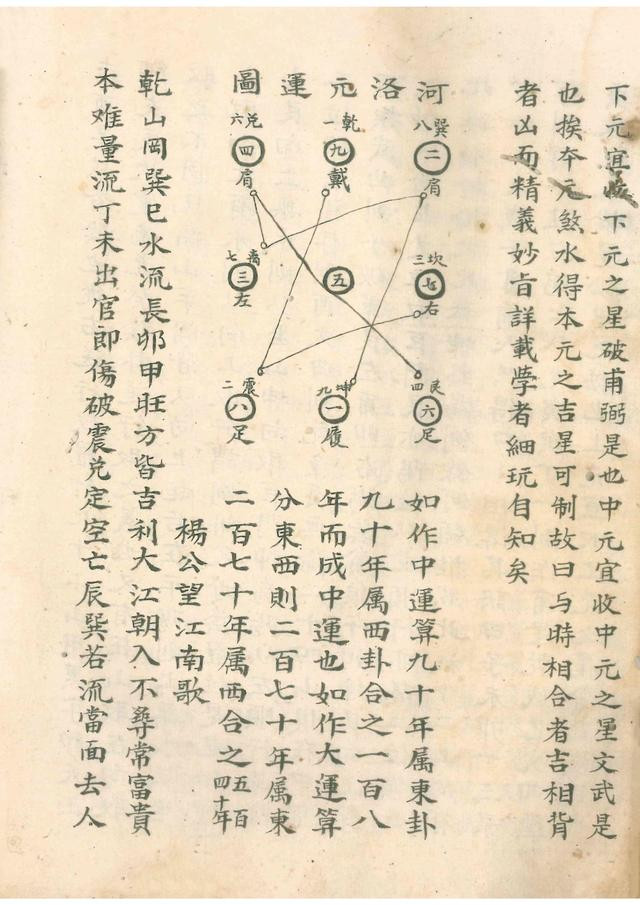 下元宜收下元之星破甫弼是也中元宜收中元之星文武是
也挨夲元煞水得本元之吉星可制故曰与時相合者吉相背
者凶而精義妙旨詳載學者細玩自知矣
河洛元運圖
巽八
二
肩
乾一
九
戴
兑六
四
肩
坎三
七
右
五
七
三
左
艮四
六
足
坤九
一
履
震二
八
足
如作中運算九十年属東卦
九十年属西卦合之一百八
年而成中運也如作大運算
分東西則二百七十年属東
二百七十年属西合之五百四十年
楊公望江南歌
乾山岡巽巳水流長夘甲旺方皆吉利大江朝入不尋常富貴
本难量流丁未出官郎傷破震兑定空亡辰巽若流當面去人